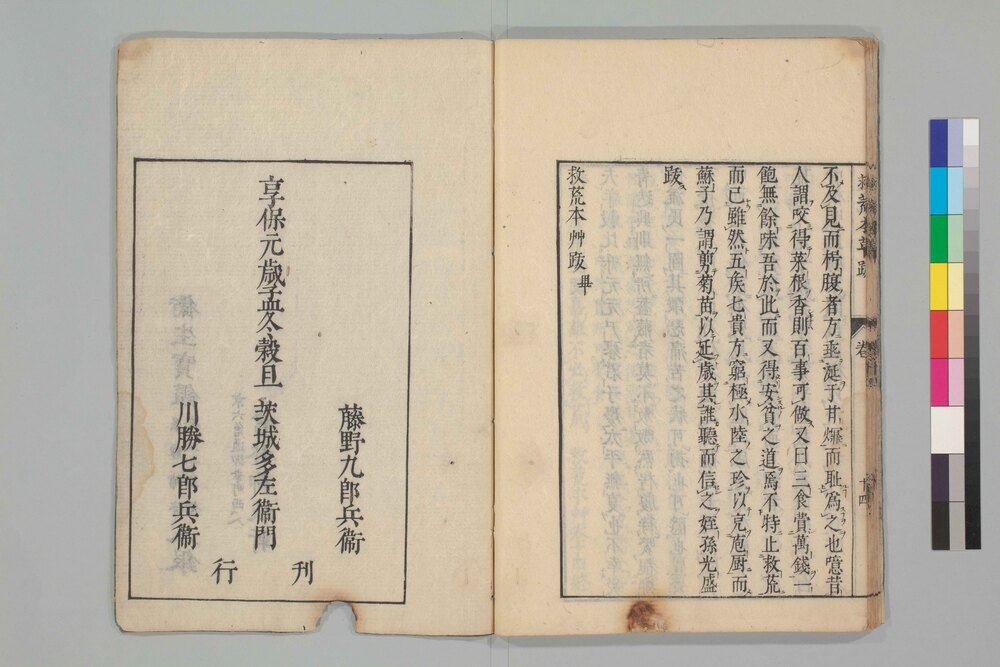 不及見而朽腹者方垂涎于其爆而耻為之也噫昔
人謂咬得菜根香則百事可做又曰三食費萬錢一
飽無餘味吾於此而又得安貧之道焉不特止救荒
而已雖然五矦七貴方窮極水陸之珍以克庖厨而
蘇子乃謂剪菊苗以延歲其誰聽而信之姪孫光盛
跋
救荒本艸跋 畢
藤野九郎兵衛
享保元歲孟冬穀旦 茨城多左衛門
川勝七郎兵衛
刊行